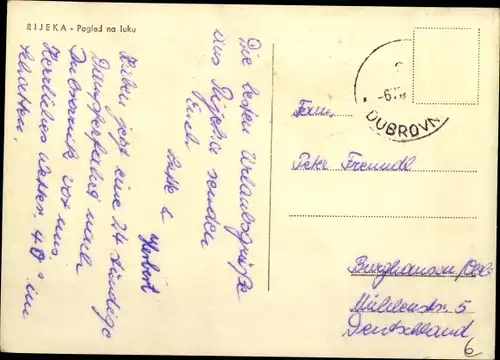 RIJEKA - Pogled na luku
Die besten Urlaubsgrüße
aus Rijeka senden
Euch
&
Herbert
Haben jetzt eine 24 stündige
Dampferfahrt nach
Dubrovnik vor uns.
Herrliches Wetter. 40° im
Schatten.
-6.
DUBROVN
Fam.
Peter Freundl
Burghausen/Obb
Mühlenstr. 5
Deutschland
6